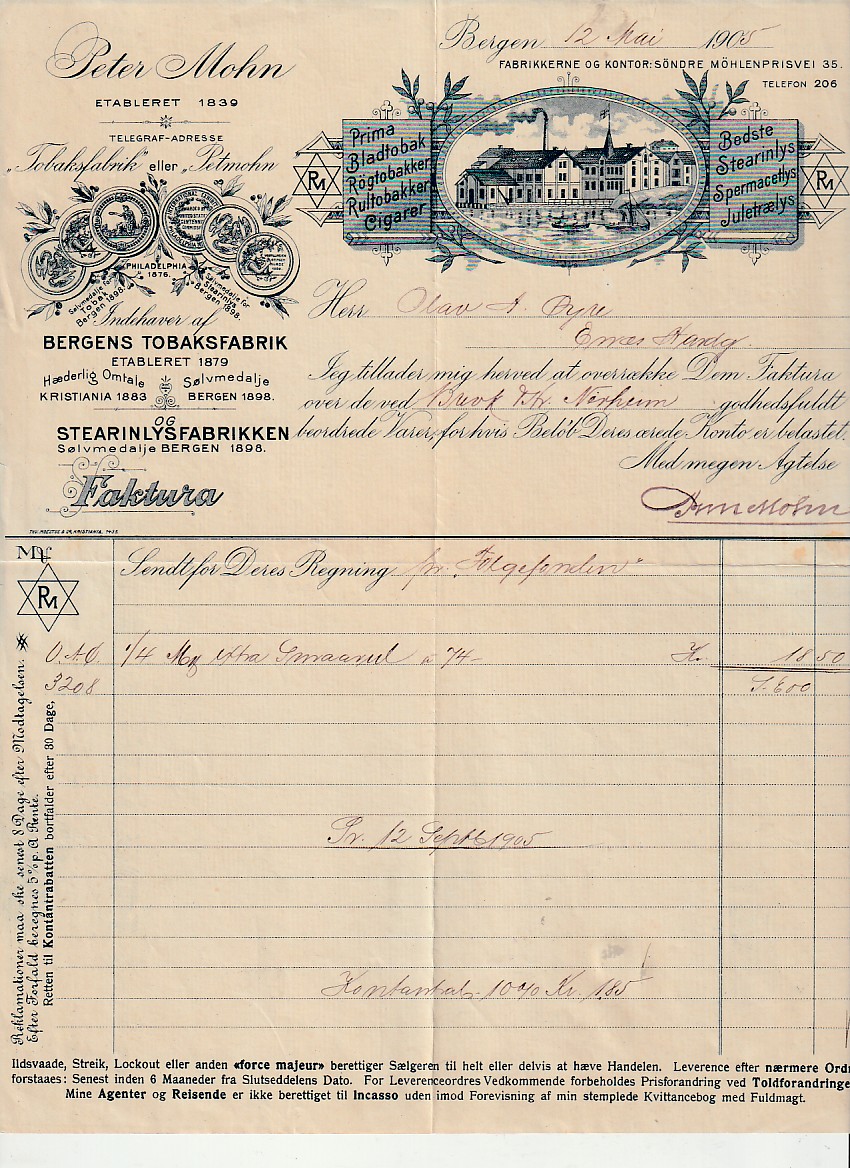 Peter Mohn
ETABLERET 1839
TELEGRAF-ADRESSE
„Tobaksfabrik" eller „Petmohn
PHILADELPHIA 1876.
Sølvmedalje for Tobak Bergen 1898.
Sølvmedalje for Stearinlys Bergen 1898.
Indehaver af
BERGENS TOBAKSFABRIK
ETABLERET 1879
Hæderlig Omtale KRISTIANIA 1883
Sølvmedalje BERGEN 1898.
OG
STEARINLYSFABRIKKEN
Sølvmedalje BERGEN 1898.
Faktura
Bergen 12 Mai 1905
FABRIKKERNE OG KONTOR: SÖNDRE MÖHLENPRISVEI 35.
TELEFON 206
Prima
Bladtobak
Rögtobakker
Rultobakker
Cigarer
Bedste
Stearinlys
Spermacetlys
Juletrælys
PM
PM
Herr Olav A. Øyre
Jeg tillader mig herved at overrække Dem Faktura
over de ved Brevk fra Nerheim godhedsfuldt
beordrede Varer, for hvis Beløb Deres ærede Konto er belastet.
Med megen Agtelse
Peter Mohn
Mrk
PM
Sendt for Deres Regning pr. „Folgefonden"
O.A.Ø. 1/4 extra Smaarul a 74- Kr. 18 50
3208
Pr. 12 Septb 1905
10% Kr. 1.85
Reklamationer maa ske senest 8 Dage efter Modtagelsen.
Efter Forfald beregnes 5% p. A. Rente.
Retten til Kontantrabatten bortfalder efter 30 Dage,
Ildsvaade, Streik, Lockout eller anden «force majeur» berettiger Sælgeren til helt eller delvis at hæve Handelen. Leverence efter nærmere Ord
forstaaes: Senest inden 6 Maaneder fra Slutseddelens Dato. For Leverenceordres Vedkommende forbeholdes Prisforandring ved Toldforandringe
Mine Agenter og Reisende er ikke berettiget til Incasso uden imod Forevisning af min stemplede Kvittancebog med Fuldmagt.